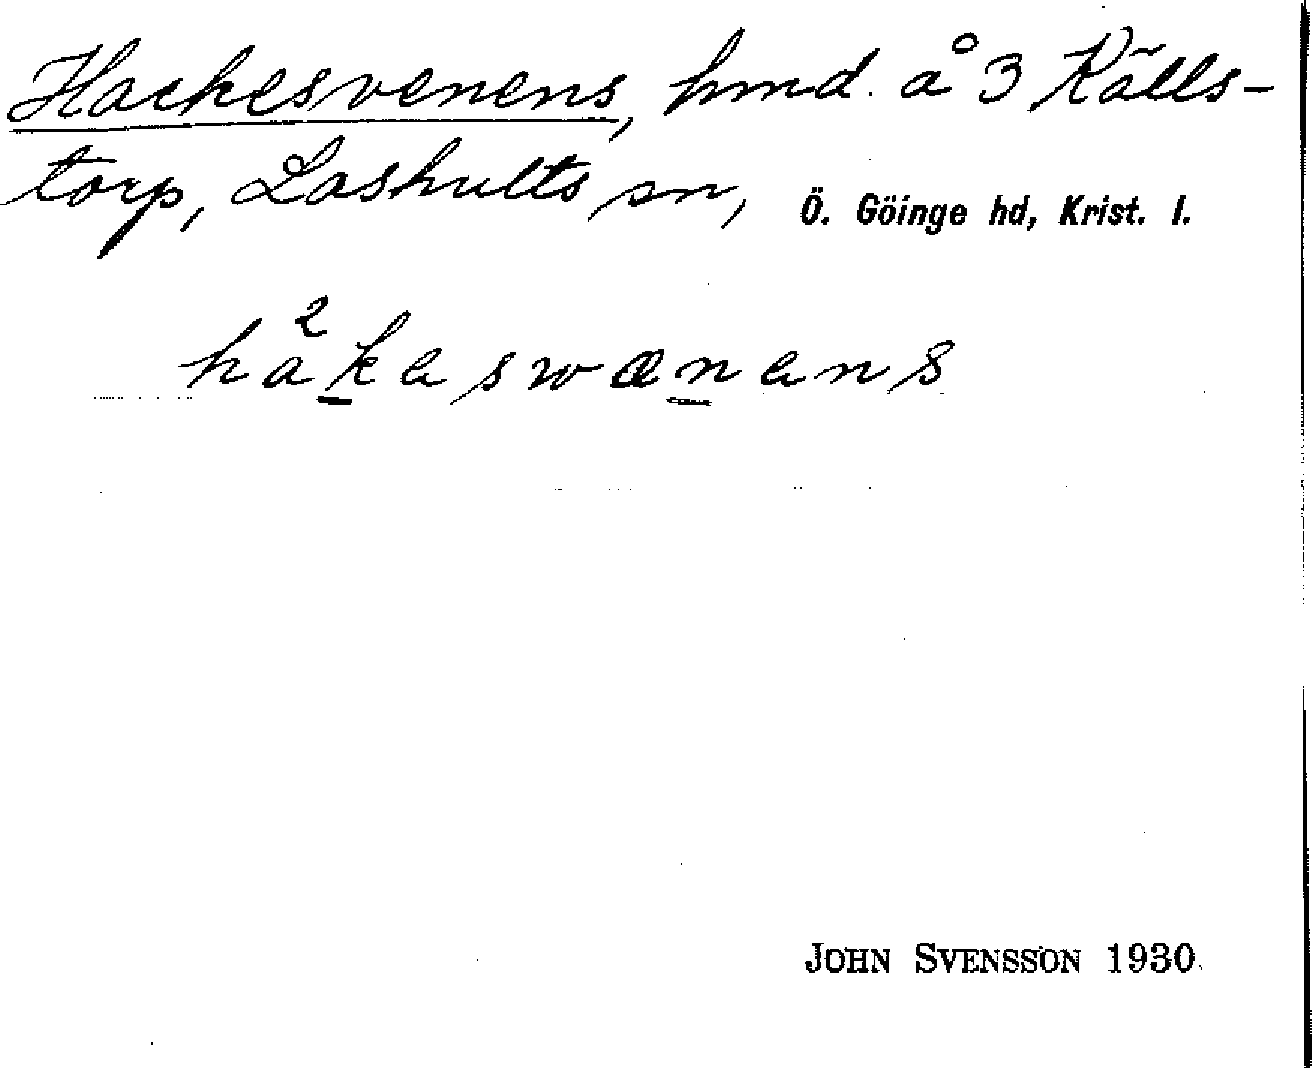 Hackesvenens, hmd. å 3 Källs-
torp, Loshults sn, Ö. Göinge hd, Krist. l.
håkaswænans
JOHN SVENSSON 1930